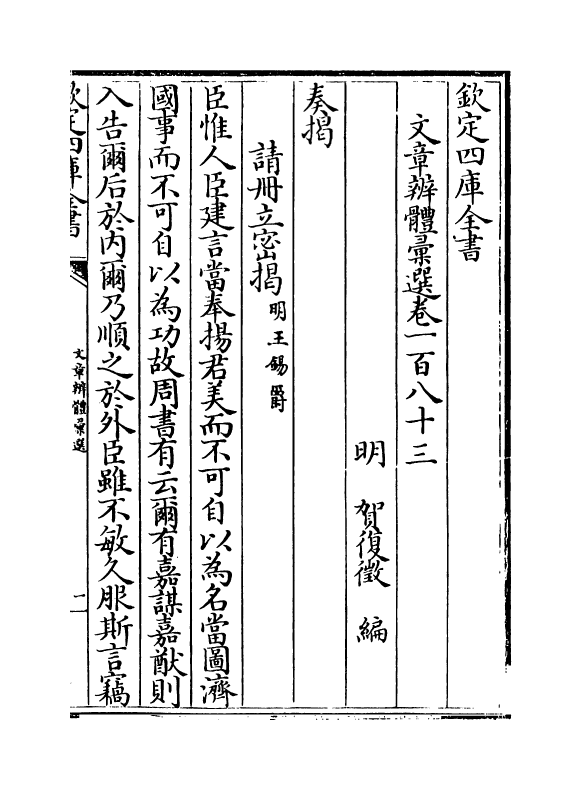 欽定四庫全書
文章辨體彙選卷一百八十三
明 賀復徵 編
奏揭
請冊立密揭明王錫爵
臣惟人臣建言當奉揚君美而不可自以為名當圖濟
國事而不可自以為功故周書有云爾有嘉謀嘉猷則
入告爾后於内爾乃順之於外臣雖不敏久服斯言竊
欽定四庫全書
文章辨體彙選
二